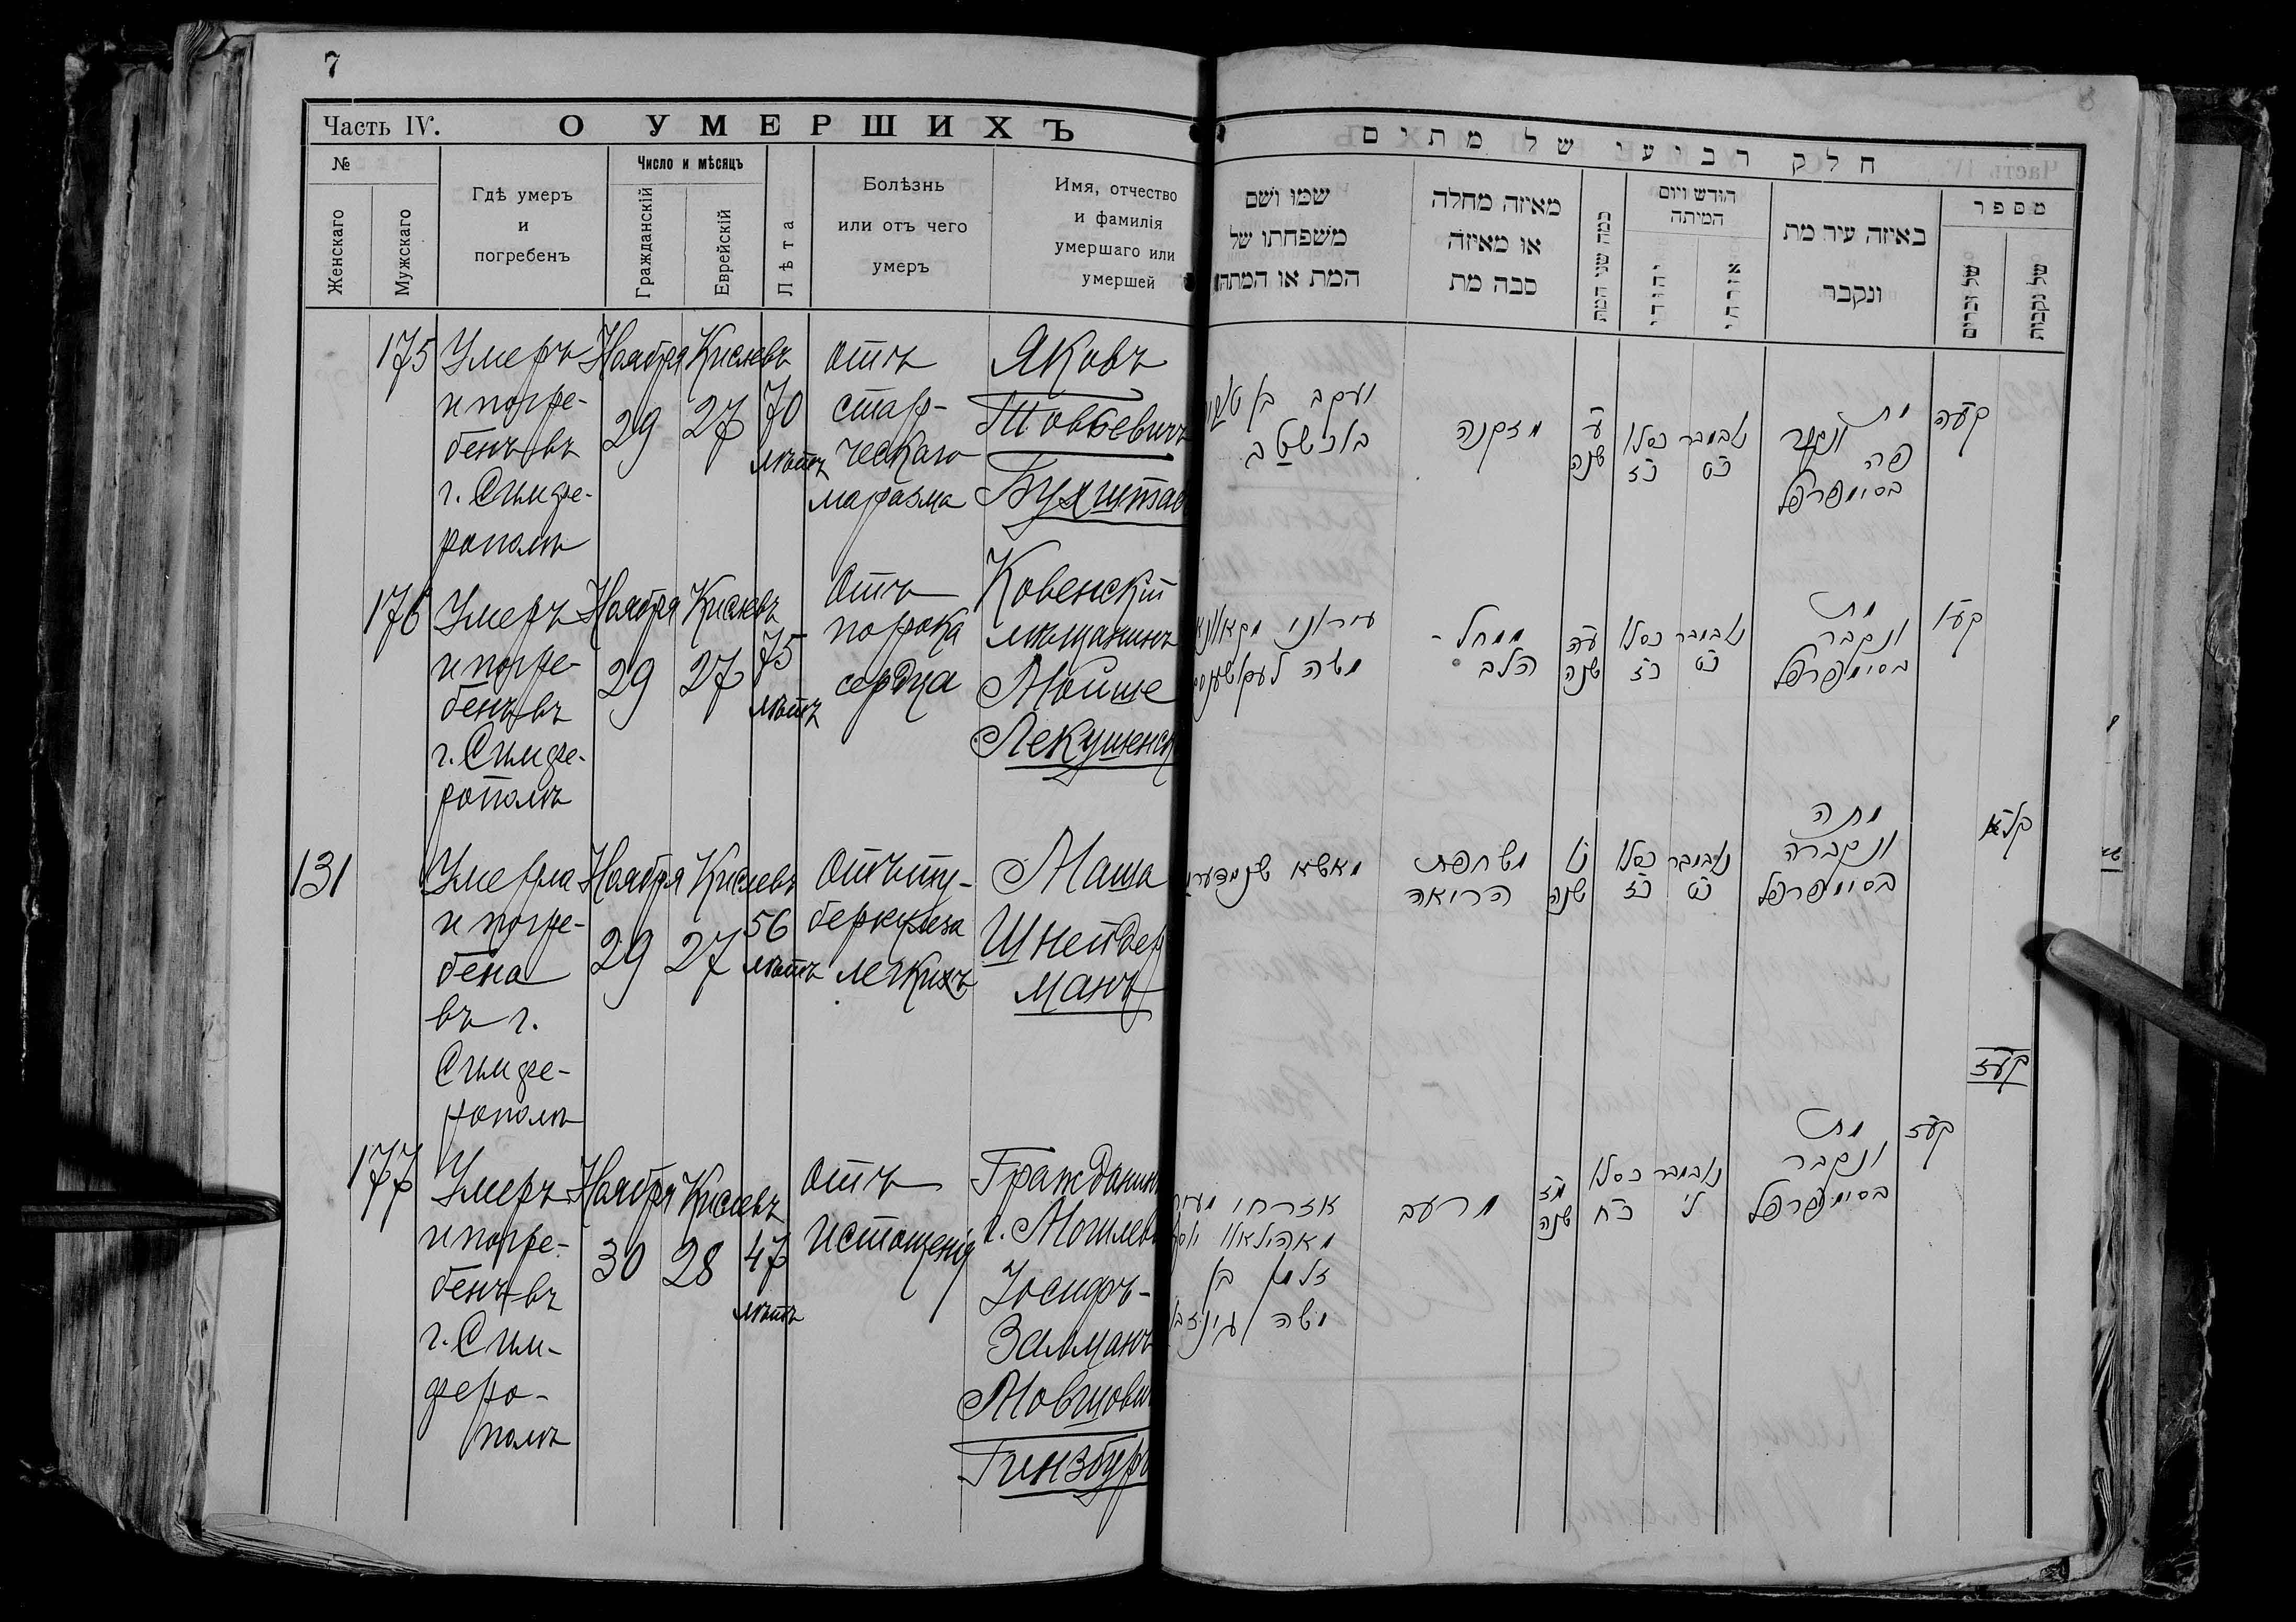 7
Часть IV.
О УМЕРШИХЪ
№
Женскаго
Мужскаго
Гдѣ умеръ
и
погребенъ
Число и мѣсяцъ
Гражданскій
Еврейскій
Лѣта
Болѣзнь
или отъ чего
умеръ
Имя, отчество
и фамилія
умершаго или
умершей
175
Умеръ
и погре-
бенъ въ
г. Симфе-
рополѣ
Ноября
29
Кислевъ
27
70
лѣтъ
Отъ
стар-
ческаго
маразма
Яковъ
Товбевичъ
Бухштаб
176
Умеръ
и погре-
бенъ въ
г. Симфе-
рополѣ
Ноября
29
Кислевъ
27
75
лѣтъ
Отъ
порока
сердца
Ковенскій
мѣщанинъ
Мойше
Лекушенск
131
Умерла
и погре-
бена
въ г.
Симфе-
рополѣ
Ноября
29
Кислевъ
27
56
лѣтъ
Отъ ту-
беркулеза
легкихъ
Маша
Шнейдер
манъ
177
Умеръ
и погре-
бенъ въ
г. Сим-
феро-
полѣ
Ноября
30
Кислевъ
28
47
лѣтъ
Отъ
истощенія
Гражданинъ
г. Могилев
Іосифъ-
Залманъ
Мовшович
Гинзбург
8
חלק רביעי של מתים
מספר
של נקבות
של זכרים
באיזה עיר מת
ונקבר
חודש ויום
המיתה
אזרחי
יהודי
כמה שני המת
מאיזה מחלה
או מאיזה
סבה מת
שמו ושם
משפחתו של
המת או המתה
קעה
מת
ונקבר
פה
בסימפרפל
נאבמבר
כט
כסלו
כז
ע
שנה
מזקנה
יעקב בן
בוכשטב
קעו
מת
ונקבר
בסימפרפל
נאבמבר
כט
כסלו
כז
עה
שנה
ממחל
הלב
עירוני מקאוונא
משה
קלא
מתה
ונקברה
בסימפרפל
נאבמבר
כט
כסלו
כז
נו
שנה
משחפת
הריאה
מאשא שניידערמ
קעז
קעז
מת
ונקבר
בסימפרפל
נאבמבר
ל
כסלו
כח
מז
שנה
מרעב
אזרחי מעיר
מאהילאוו יוסף
זלמן בן
משה גינזבו